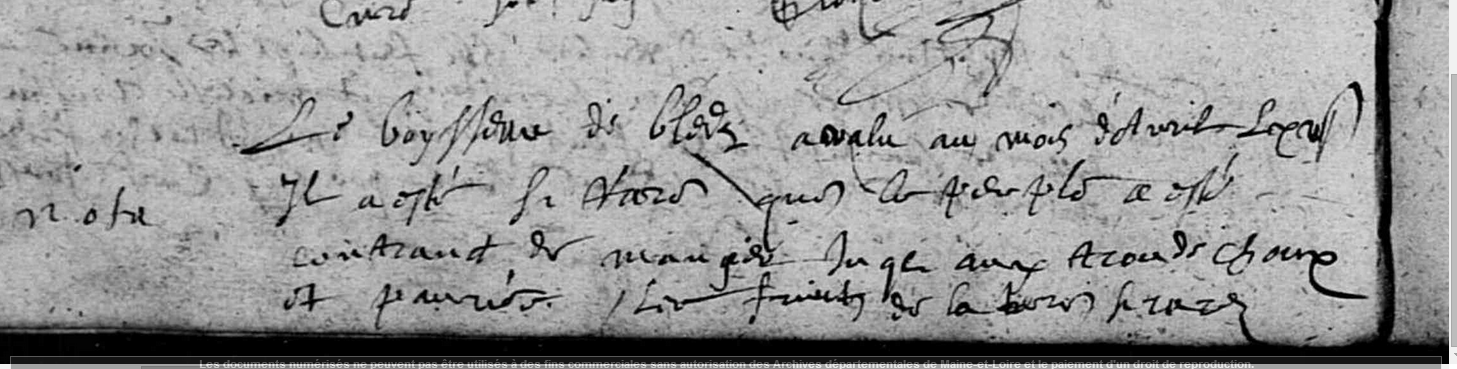 Le boysseau de bledz a valu au mois d'Avril
nota
Il a esté si que le peuple a esté
contraint de manger Juqu aux trou de choux
et / Les fruits de la terre si rares
Les documents numérisés ne peuvent pas être utilisés à des fins commerciales sans autorisation des Archives départementales de Maine-et-Loire et le paiement d'un droit de reproduction.